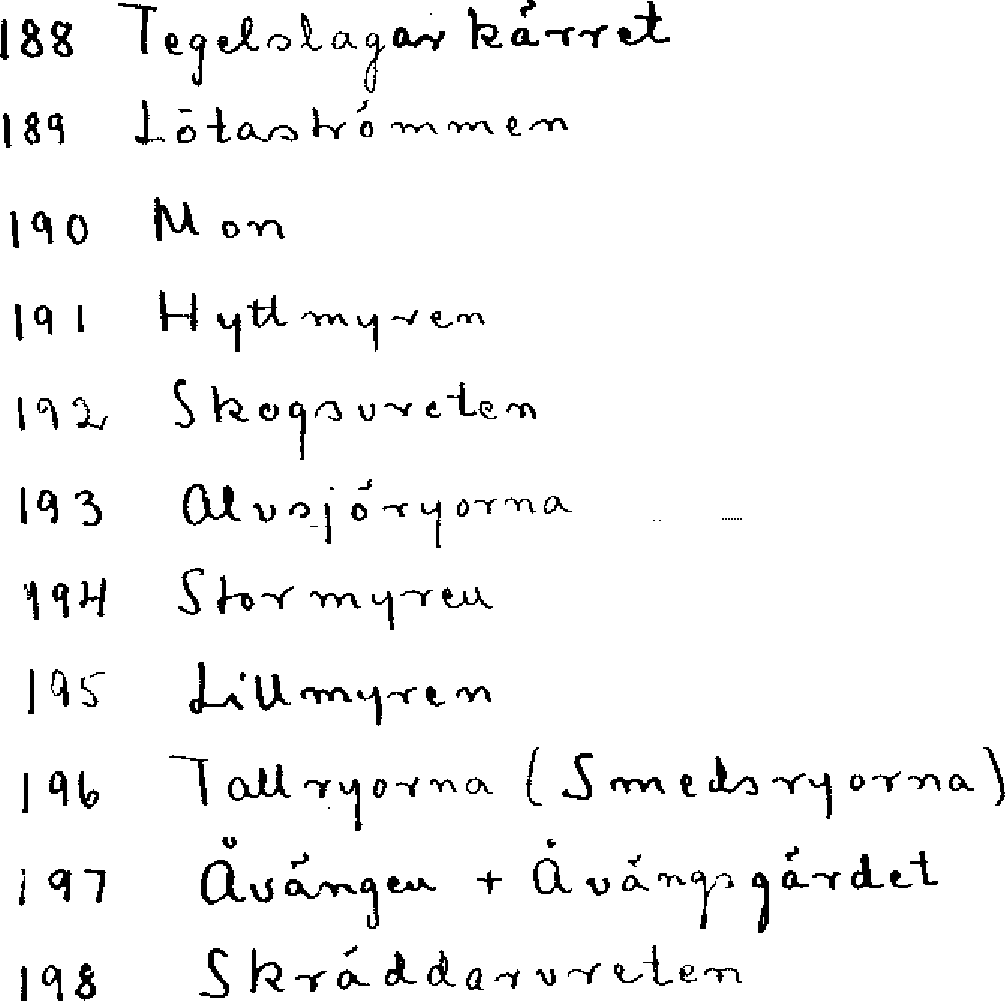 188 Tegelslagarkärret
189 Lötaströmmen
190 Mon
191 Hyttmyren
192 Skogsvreten
193 Alvsjöryorna
194 Stormyren
195 Lillmyren
196 Tallryorna (Smedsryorna)
197 Åvängen + Åvängsgärdet
198 Skräddarvreten